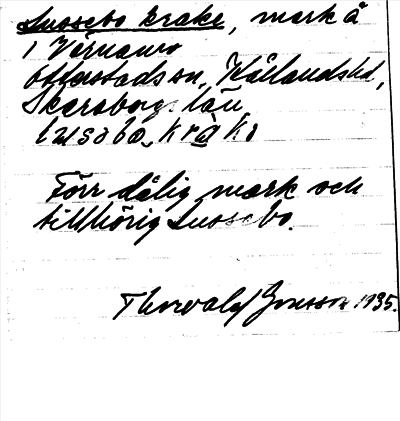 Lussebo krake, mark å
i Värnamo
Ottossadsson, Kållandshd,
Skaraborgs län
lusəbo kråkə
Förr dålig mark och
tillhörig Lussebo.
Thorvald Jonsson 1935.